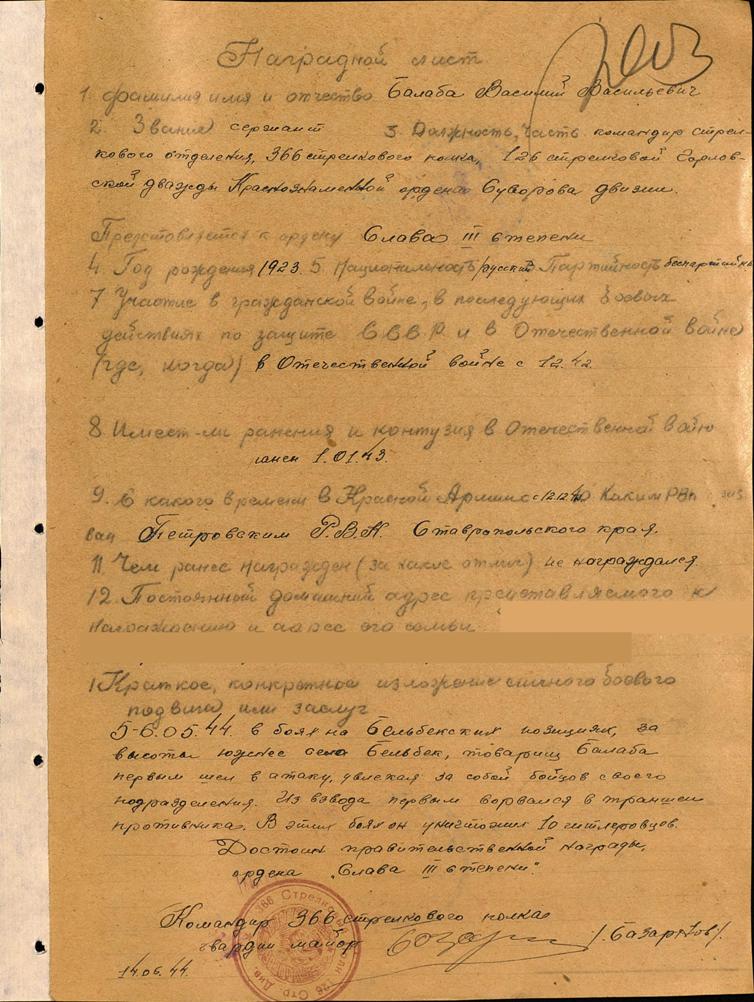 Наградной лист
1. фамилия имя и отчество Балаба Василий Васильевич
2. Звание сержант 3. Должность, часть командир стрел-
кового отделения, 366 стрелкового полка, 126 стрелковой Горлов-
ской дважды Краснознаменной ордена Суворова дивизии.
Представляется к ордену Слава III степени
4. Год рождения 1923. 5. Национальность русский Партийность беспартийный
7 Участие в гражданской войне, в последующих боевых
действиях по защите СССР и в Отечественной войне
(где, когда) в Отечественной войне с 12.42
8. Имеет-ли ранения и контузия в Отечественной войне
ранен 1.01.43.
9. С какого времени в Красной Армии с 12.12.42 10. Каким РВК приз
ван Петровским Р.В.К. Ставропольского края.
11. Чем ранее награжден (за какие отлич) не награждался
12. Постоянный домашний адрес представляемого к
награждению и адрес его семьи
1. Краткое, конкретное изложение личного боевого
подвига или заслуг
5-6.05.44. в боях на Бельбекских позициях, за
высоты южнее села Бельбек, товарищ Балаба
первым шел в атаку, увлекая за собой бойцов своего
подразделения. Из взвода первым ворвался в траншеи
противника. В этих боях он уничтожил 10 гитлеровцев.
Достоин правительственной награды,
ордена „Слава III степени".
Командир 366 стрелкового полка
гвардии майор /Базарнов/.
14.05.44.